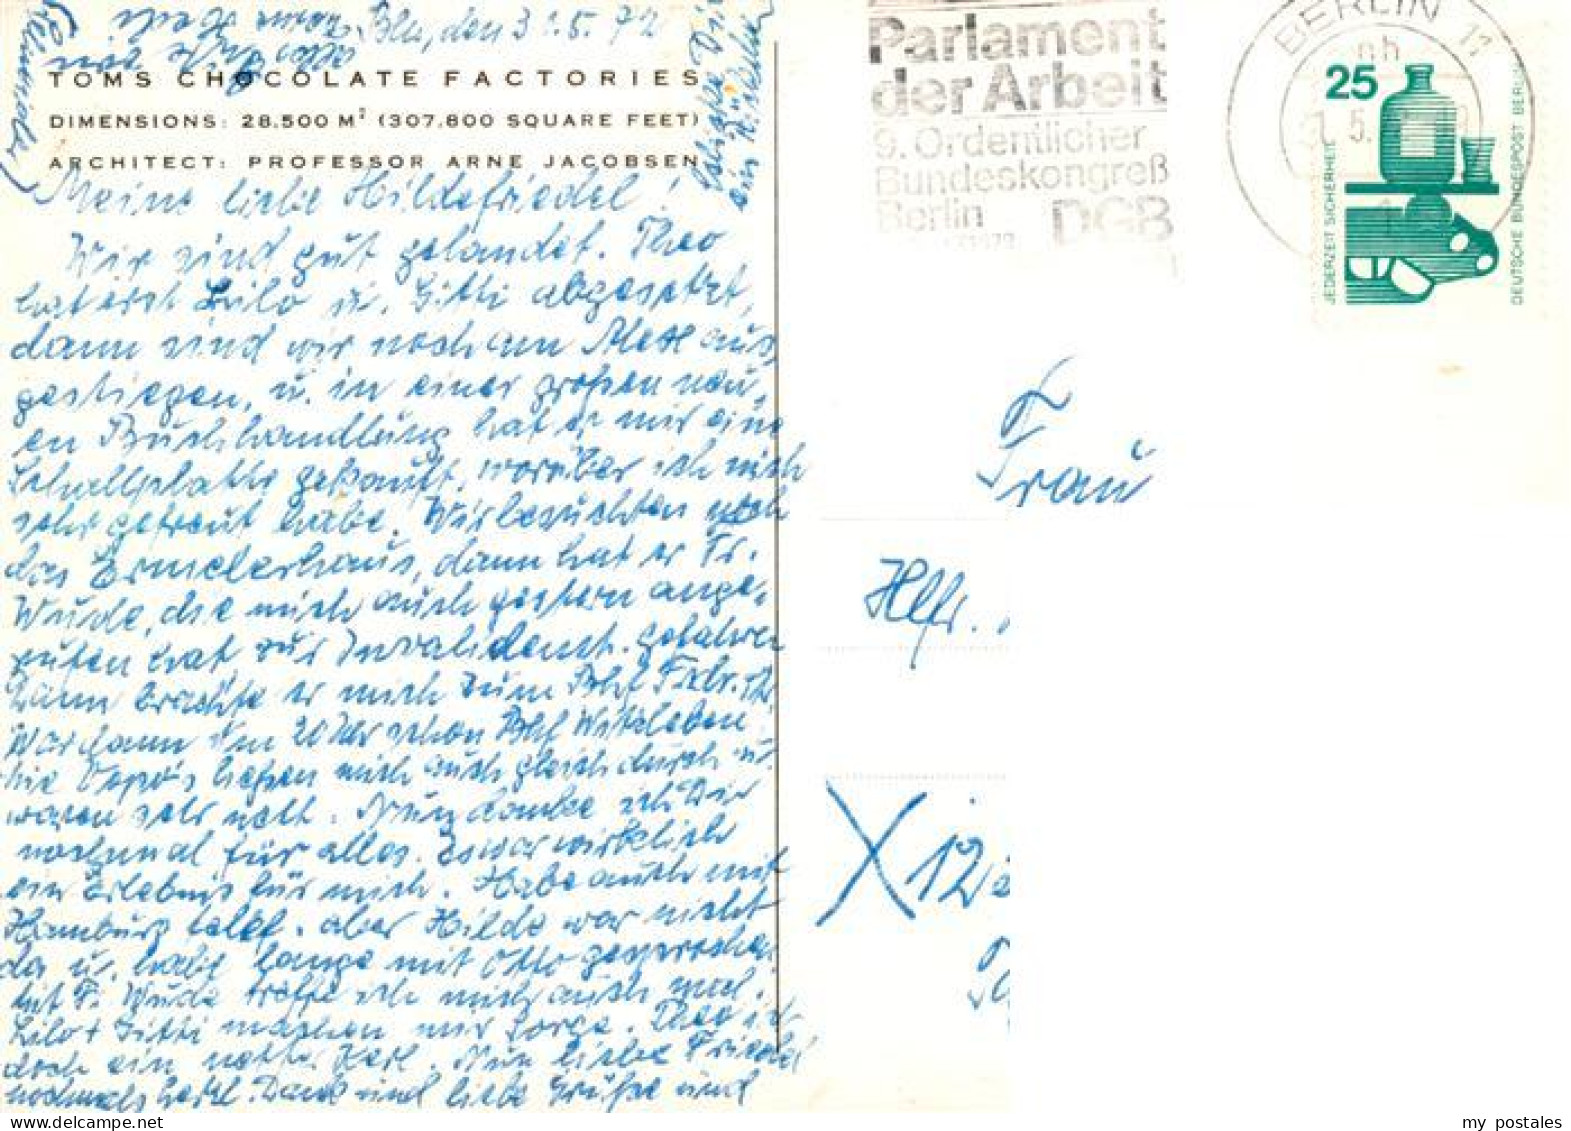 Bln, den 31.5.72
TOMS CHOCOLATE FACTORIES
DIMENSIONS: 28.500 M² (307.800 SQUARE FEET)
ARCHITECT: PROFESSOR ARNE JACOBSEN
Meine liebe Hildefriedel!
Wir sind gut gelandet. Theo
hat erst Lilo u. Gitti abgesetzt,
dann sind wir noch am Alex aus,
gestiegen, u. in einer großen neu,
en Buchhandlung hat er mir eine
Schallplatte gekauft, worüber ich mich
sehr gefreut habe. Wir besuchten noch
das Ermelerhaus, dann hat er Fr.
Wude, die mich auch gestern ange,
rufen hat, zur Invalidenst. gefahren
Dann brachte er mich zum Bhf Friedr. str.
War dann um 20 Uhr schon Bhf Witzleben
Die Vopo's ließen mich auch gleich durch u.
waren sehr nett. Nun danke ich Dir
nochmal für alles. Es war wirklich
ein Erlebnis für mich. Habe auch mit
Hamburg telef. aber Hilde war nicht
da u. habe lange mit Otto gesprochen
Mit Fr. Wude treffe ich mich auch mal.
Lilo + Gitti machen mir Sorge. Theo ist
doch ein netter Kerl. Nun liebe Friedel
nochmals herzl. Dank und liebe Grüße und
Parlament
der Arbeit
9. Ordentlicher
Bundeskongreß
Berlin DGB
BERLIN 11
25
JEDERZEIT SICHERHEIT
DEUTSCHE BUNDESPOST BERLIN
Frau
X 12
my_postales